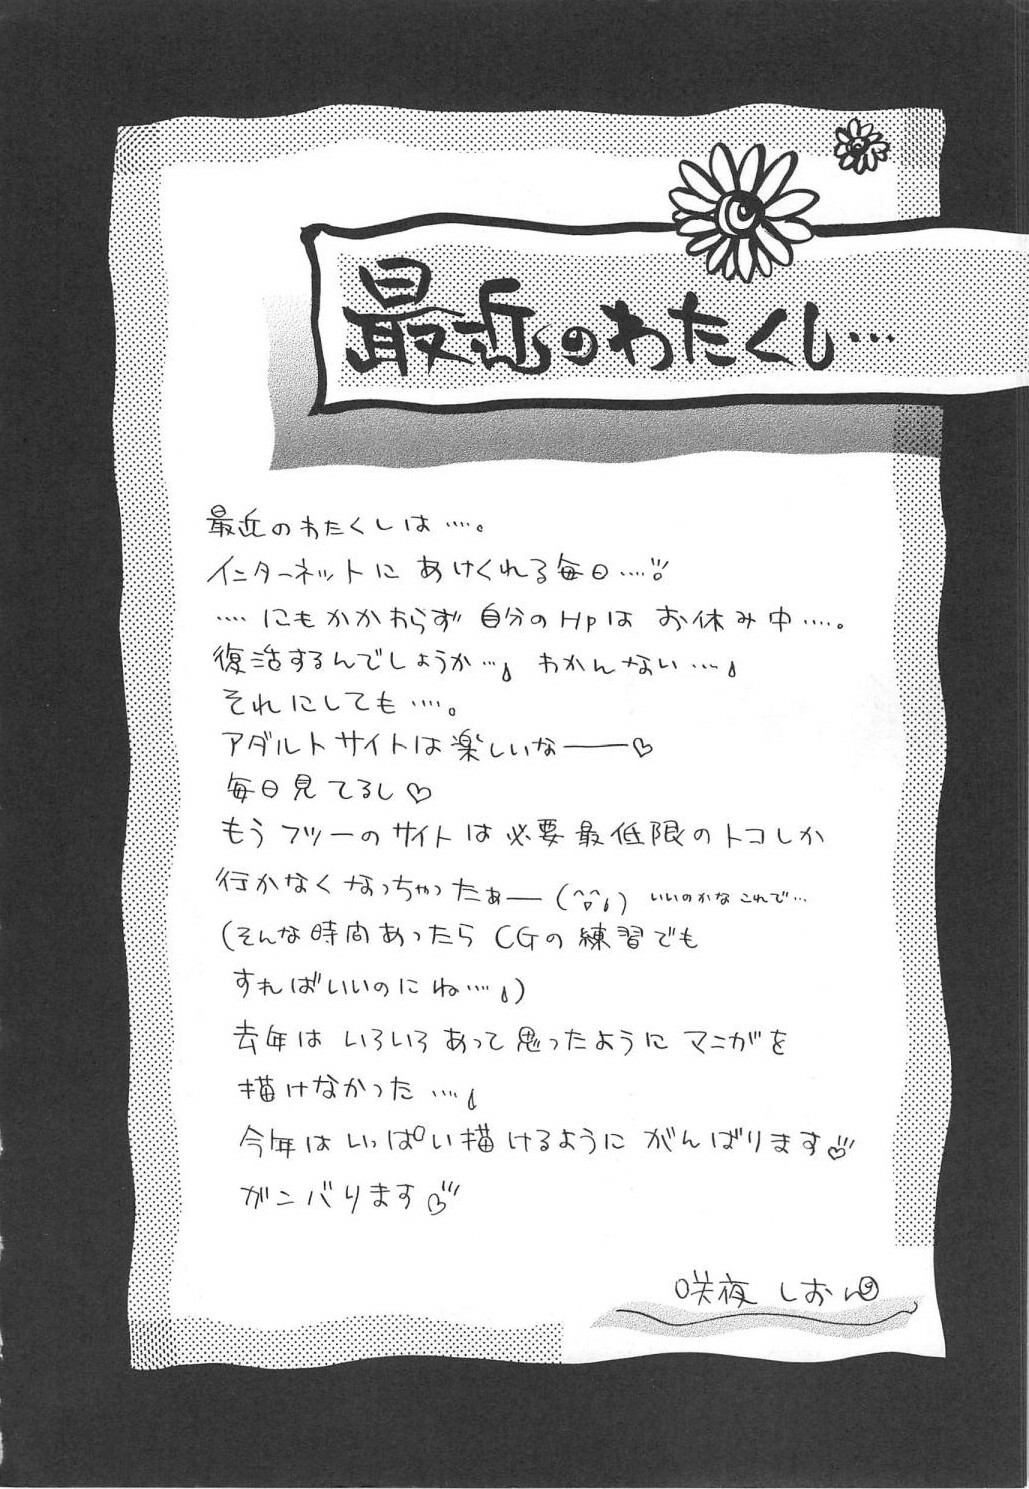 最近のわたくし…
最近のわたくしは….。
インターネットに あけくれる毎日….!!
….にもかかわらず 自分のHpは お休み中….。
復活するんでしょうか… わかんない….
それにしても….。
アダルトサイトは楽しいなーー♡
毎日見てるし♡
もうフツーのサイトは必要最低限のトコしか
行かなくなっちゃったぁー(^▽^;) いいのかな これで…
(そんな時間あったら CGの練習でも
すればいいのにね….)
去年は いろいろあって思ったように マンガを
描けなかった….
今年はいっぱい描けるように がんばります♡
ガンバります♡
咲夜 しおん